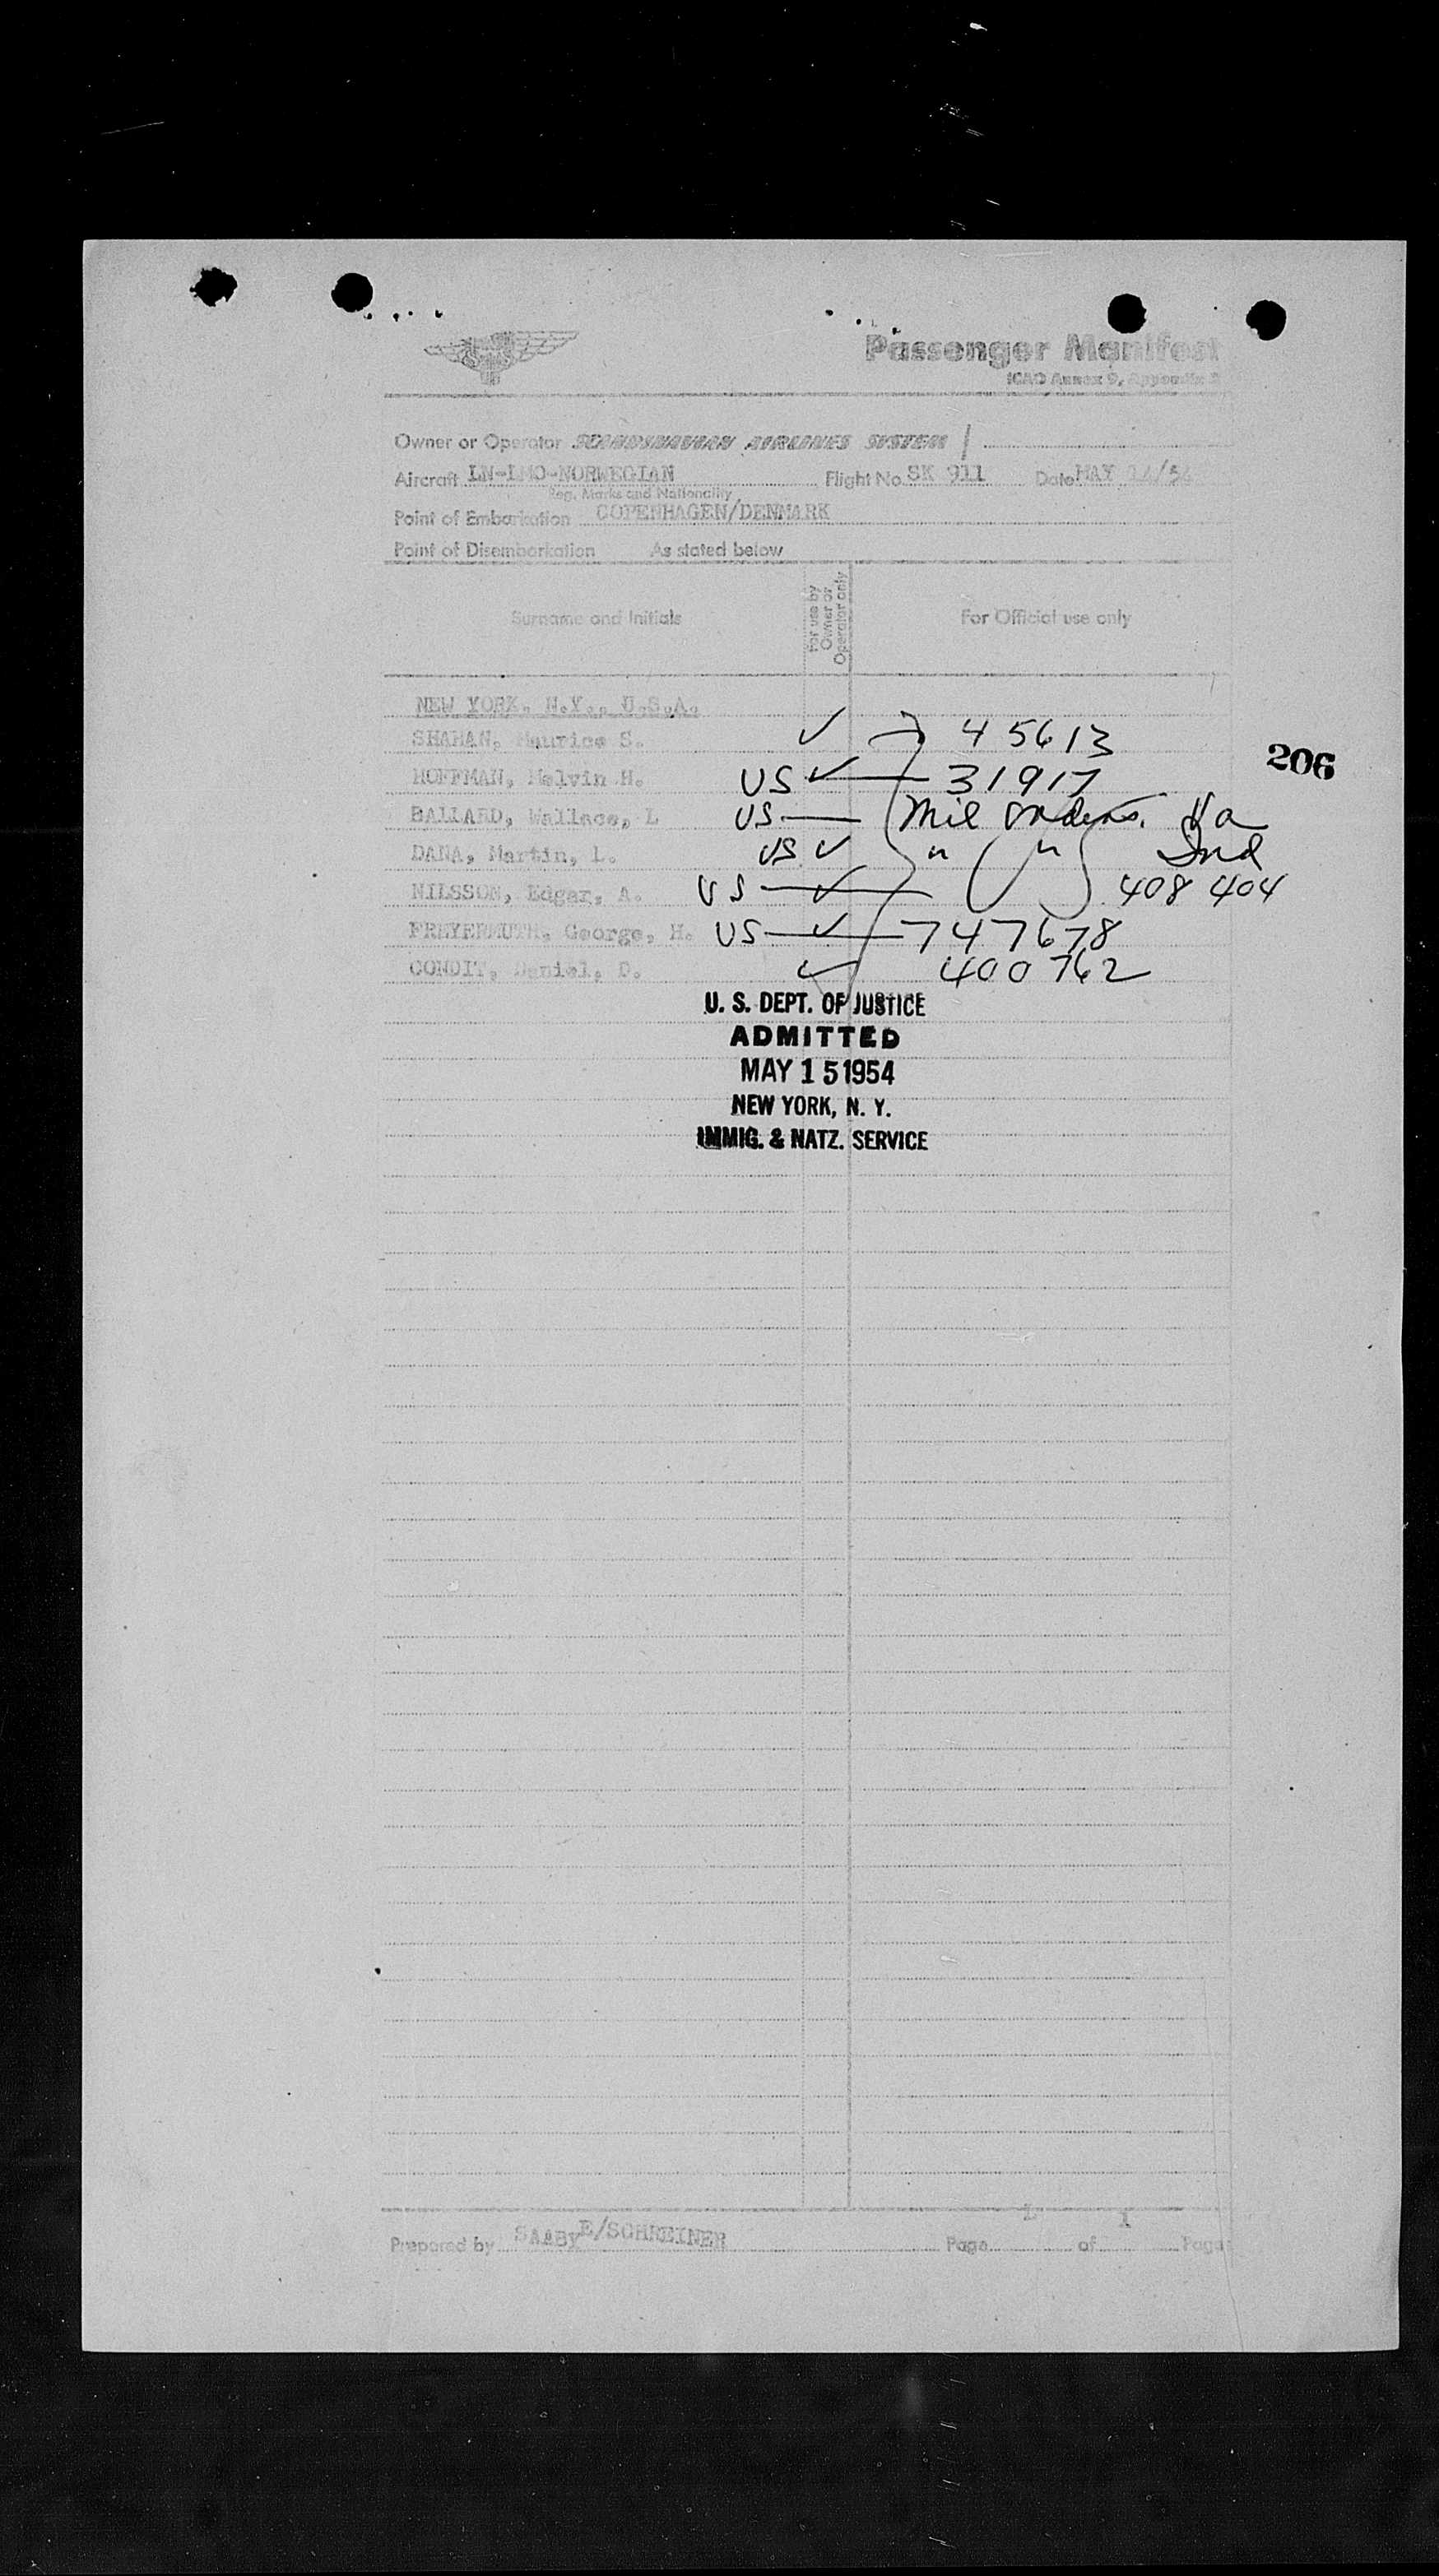 Passenger Manifest
ICAO Annex 9, Appendix
Owner or Operator SCANDINAVIAN AIRLINES SYSTEM
Aircraft LN-LMO-NORWEGIAN Flight No. SK 911 Date MAY 14/54
Reg. Marks and Nationality
Point of Embarkation COPENHAGEN/DENMARK
Point of Disembarkation As stated below
Surname and Initials For use by Owner or Operator only For Official use only
NEW YORK, N.Y., U.S.A.
SHAHAN, Maurice S. ✓ 45613
206
HOFFMAN, Melvin H. US ✓ 31917
BALLARD, Wallace, L US Mil orders. Va
DANA, Martin, L. US ✓ " " Ind
NILSSON, Edgar, A. US ✓ 408 404
FREYERMUTH, George, H. US ✓ 747678
CONDIT, Daniel, D. ✓ 400762
U. S. DEPT. OF JUSTICE
ADMITTED
MAY 15 1954
NEW YORK, N. Y.
IMMIG. & NATZ. SERVICE
Prepared by SAABYE/SCHREINER Page 1 of 1 Page